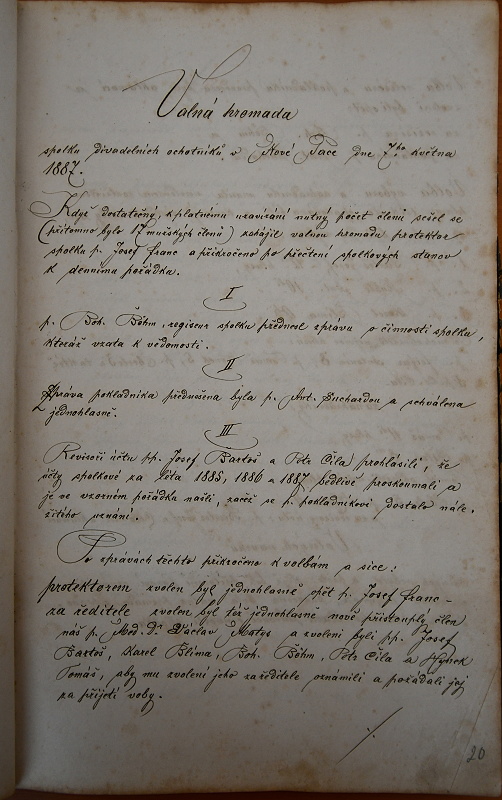 Valná hromada
spolku divadelních ochotníků v Nové Pace dne 7.ho května
1887.
Když dostatečný, k platnému uzavírání nutný počet členů sešel se
(přítomno bylo 17 mužských členů) zahájil valnou hromadu protektor
spolku p. Josef Franc a přikročeno po přečtení spolkových stanov
k dennímu pořádku.
I
p. Boh. Böhm, regiseur spolku přednesl zprávu o činnosti spolku,
kteráž vzata k vědomosti.
II
Zpráva pokladníka přednešena byla p. Ant. Suchardou a schválena
jednohlasně.
III
Revisoři účtu pp. Josef Bartoš a Petr Cíla prohlásili, že
účty spolkové za léta 1885, 1886 a 1887 bedlivě proskoumali a
je ve vzorném pořádku našli, začež se p. pokladníkovi dostalo nále-
žitého uznání.
Po zprávách těchto přikročeno k volbám a sice:
protektorem zvolen byl jednohlasně opět p. Josef Franc –
za ředitele zvolen byl též jednohlasně nově přistouplý člen
náš p. Med. Dr. Václav Matys a zvoleni byli pp. Josef
Bartoš, Karel Blíma, Boh. Böhm, Petr Cíla a Hynek
Tomáš, aby mu zvolení jeho za ředitele oznámili a požádali jej
za přijetí volby.
./.
20